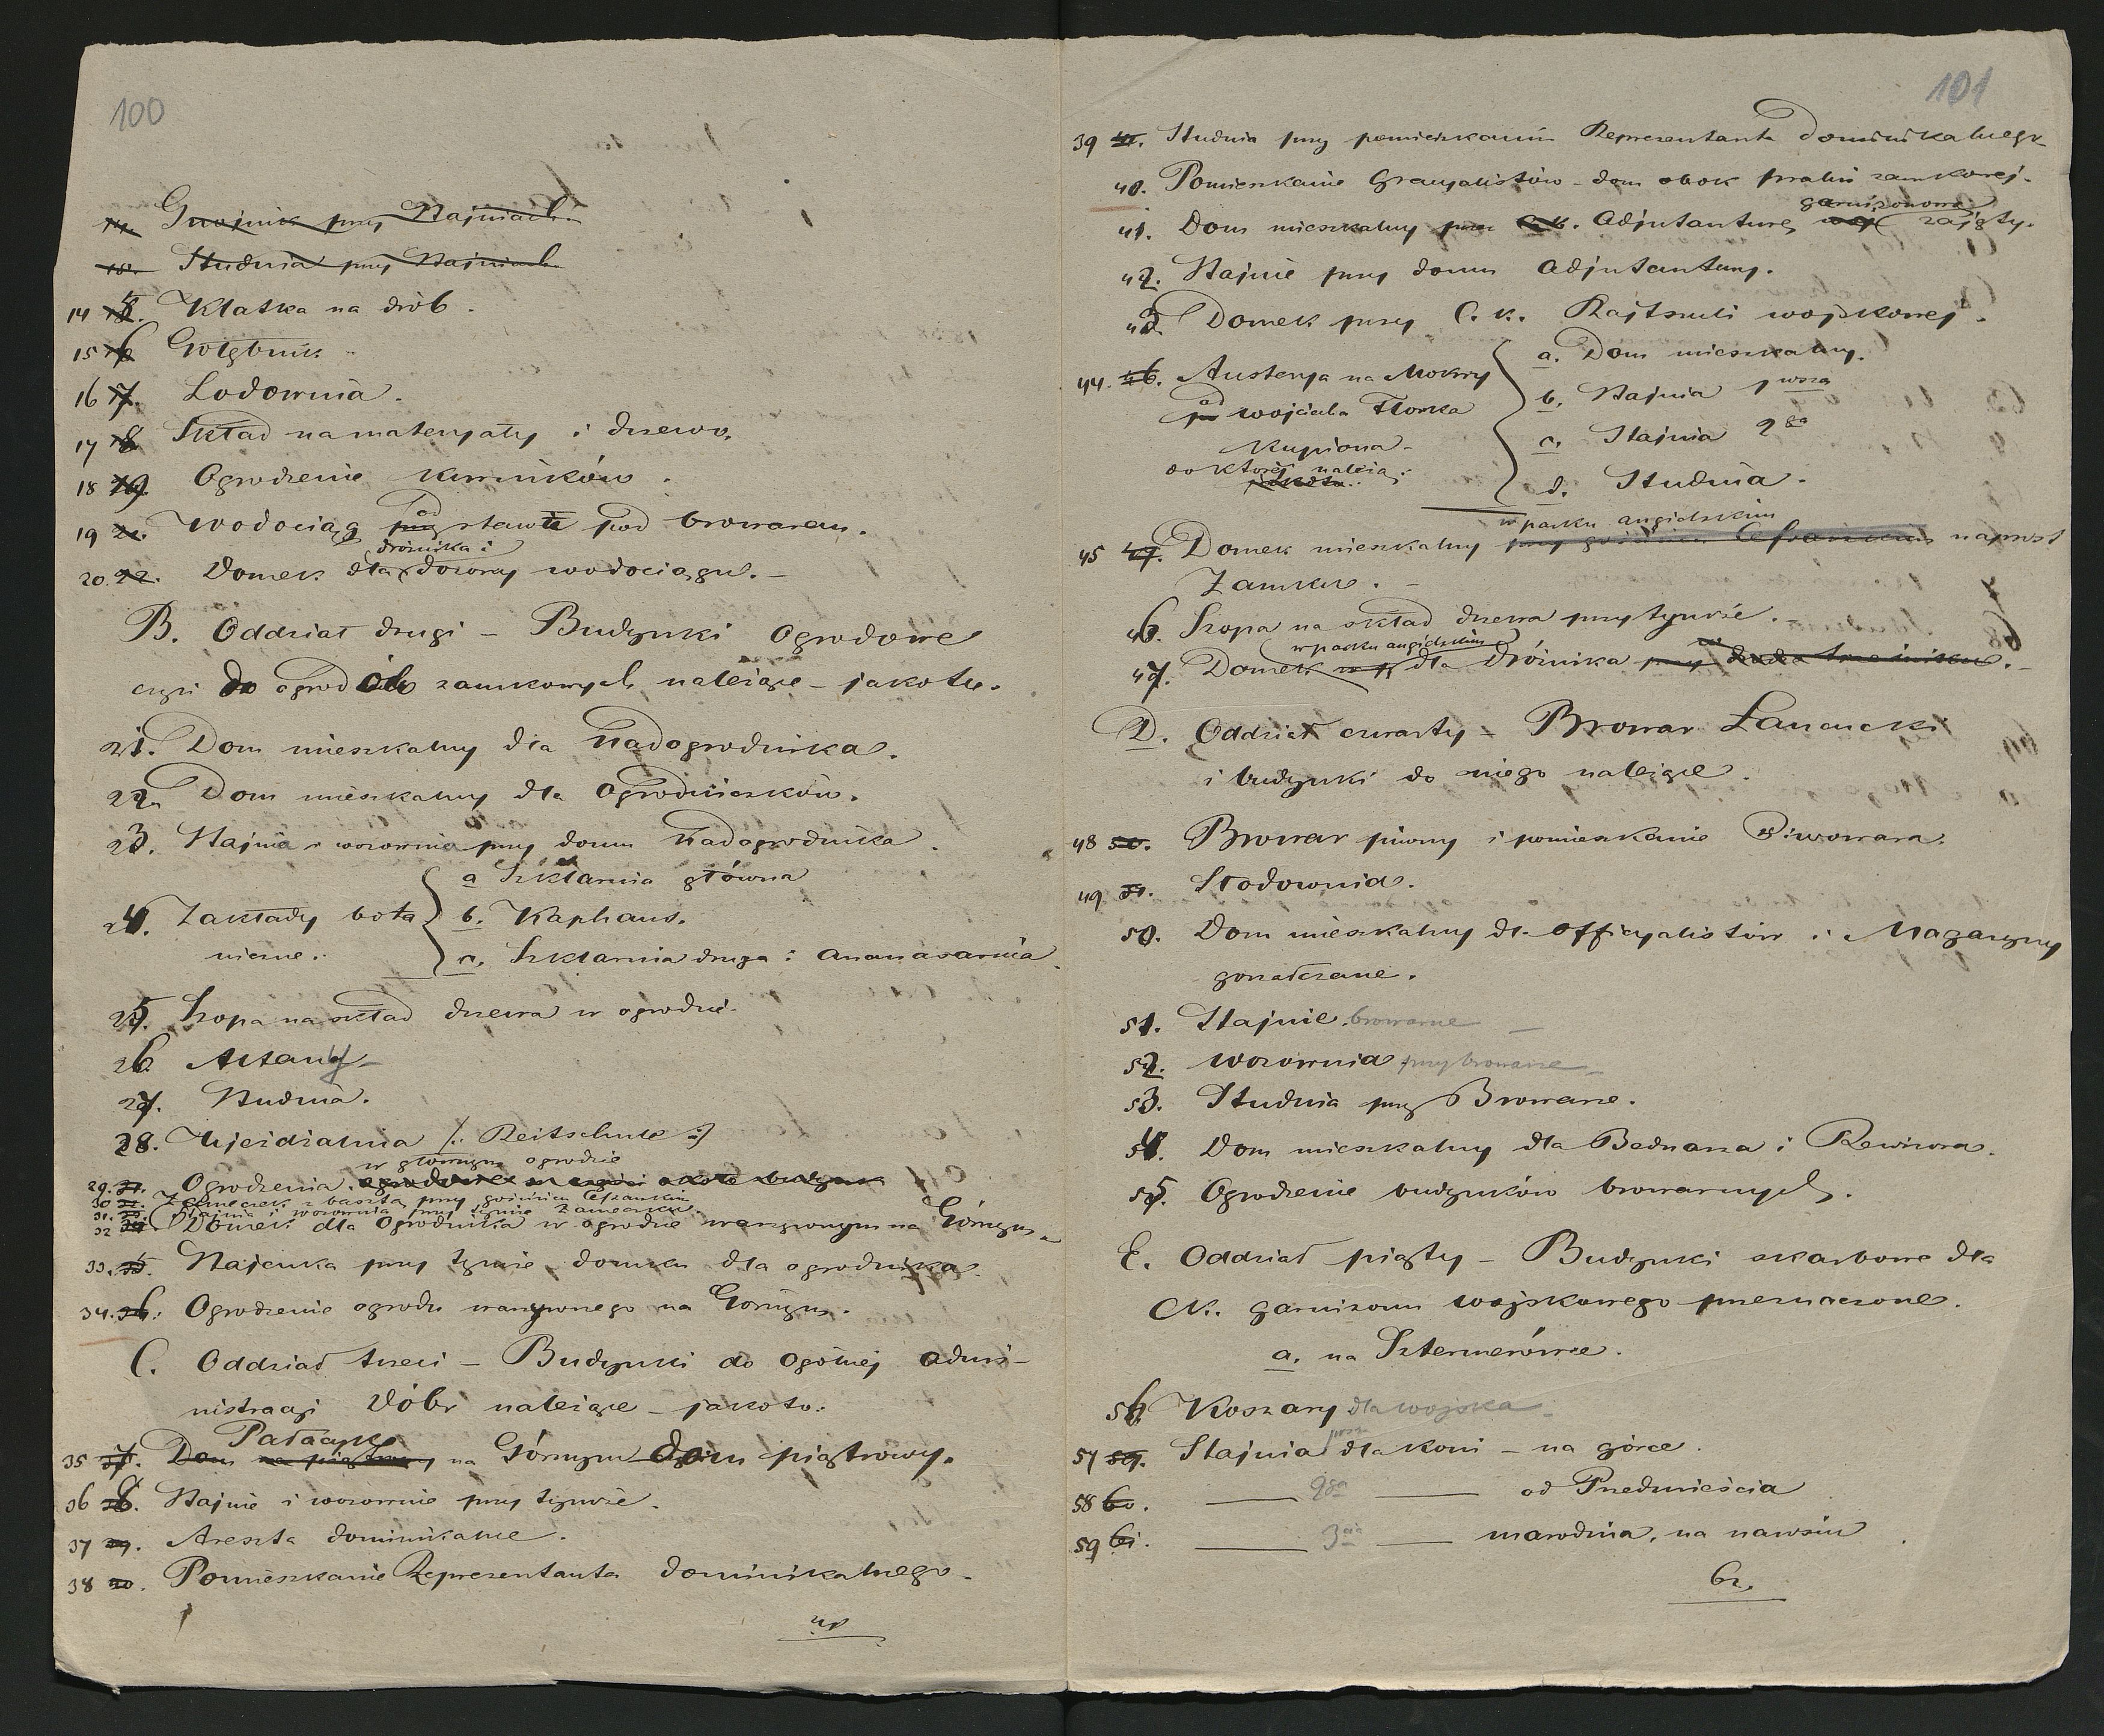 100
Gnojnik przy Stajniach.
Studnia przy Stajniach.
14 Klatka na drób.
15 Gołębnik
16 Lodownia.
17 Skład na materyały i drzewo.
18 Ogrodzenie kurników.
19 Wodociąg od stawu pod browarem.
dróżnika i
20. Domek dla dozorcy wodociągu.
B. Oddział drugi – Budynki Ogrodowe
czyli do ogrodów zamkowych należące – jakoto.
21. Dom mieszkalny dla Nadogrodnika.
22. Dom mieszkalny dla Ogrodniczków.
23. Stajnia i wozownia przy domu Nadogrodnika.
a Szklarnia główna
24. Zakłady bota b. Kaphaus.
niczne. c. Szklarnia druga i Ananasarnia
25. Szopa na skład drzewa w ogrodzie.
26. Altany
27. Studnia.
28. Ujeżdżalnia /: Reitschule :/
w głównym ogrodzie
29. Ogrodzenia
30 baszta przy gościńcu Cesarskim
31. Stajnia i wozownia przy tymże zameczku
32 Domek dla Ogrodnika w ogrodzie warzywnym na Górnym.
33. Stajenka przy tymże domku dla ogrodnika.
34. Ogrodzenie ogrodu warzywnego na Górnym.
C. Oddział trzeci – Budynki do ogólnej admi-
nistracji Dóbr należące – jakoto:
Pałacyk
35 37. Dom na Górnym dom piątrowy.
36 Stajnie i wozownie przy tymże.
37 Areszta dominikalne.
38 Pomieszkanie Reprezentanta dominikalnego.
101
39 Studnia przy pomieszkaniu Reprezentanta Dominikalnego
40. Pomieszkanie Gracyalistów – dom obok pralni zamkowej.
garnizonową
41. Dom mieszkalny przez C.k. Adjutanturę zajęty.
42. Stajnie przy domu Adjutantury.
43. Domek przy C. k. Rajtszuli wojskowej.
a. Dom mieszkalny.
44. Austerya na Mokry b. Stajnia 1wsza
od Wojciecha Flonka c. Stajnia 2ga
Kupiona –
do której należą: d. Studnia.
w parku angielskim
45 Domek mieszkalny przy gościńcu Cesarskim naprost
Zamku.
46. Szopa na skład drzewa przy tymże.
w parku angielskim
47. Domek dla dróżnika przy
D. Oddział czwarty – Browar Łańcucki
i budynki do niego należące.
48 50. Browar piwny i pomieszkanie Piwowara.
49 51. Słodownia.
50. Dom mieszkalny dla Officyalistów i Magazyny
gorzałczane.
51. Stajnie browarne
52. Wozownia przy browarze
53. Studnia przy Browarze.
54. Dom mieszkalny dla Bednarza i Rewizora.
55. Ogrodzenie budynków browarnych.
E. Oddział piąty – Budynki skarbowe dla
CK. garnizonu wojskowego przeznaczone.
a. na Szternerówce.
56. Koszary dla wojska
57 59. Stajnia dla koni – na górce.
58 60. 2ga od Przedmieścia
59 61. 3cia marodnia, na nawsiu
62.